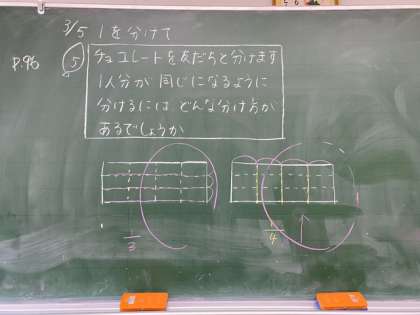 3/5 1を分けて
P.96
5
チョコレートを友だちと分けます
1人分が同じになるように
分けるには どんな分け方が
あるでしょうか
1/3
1/4